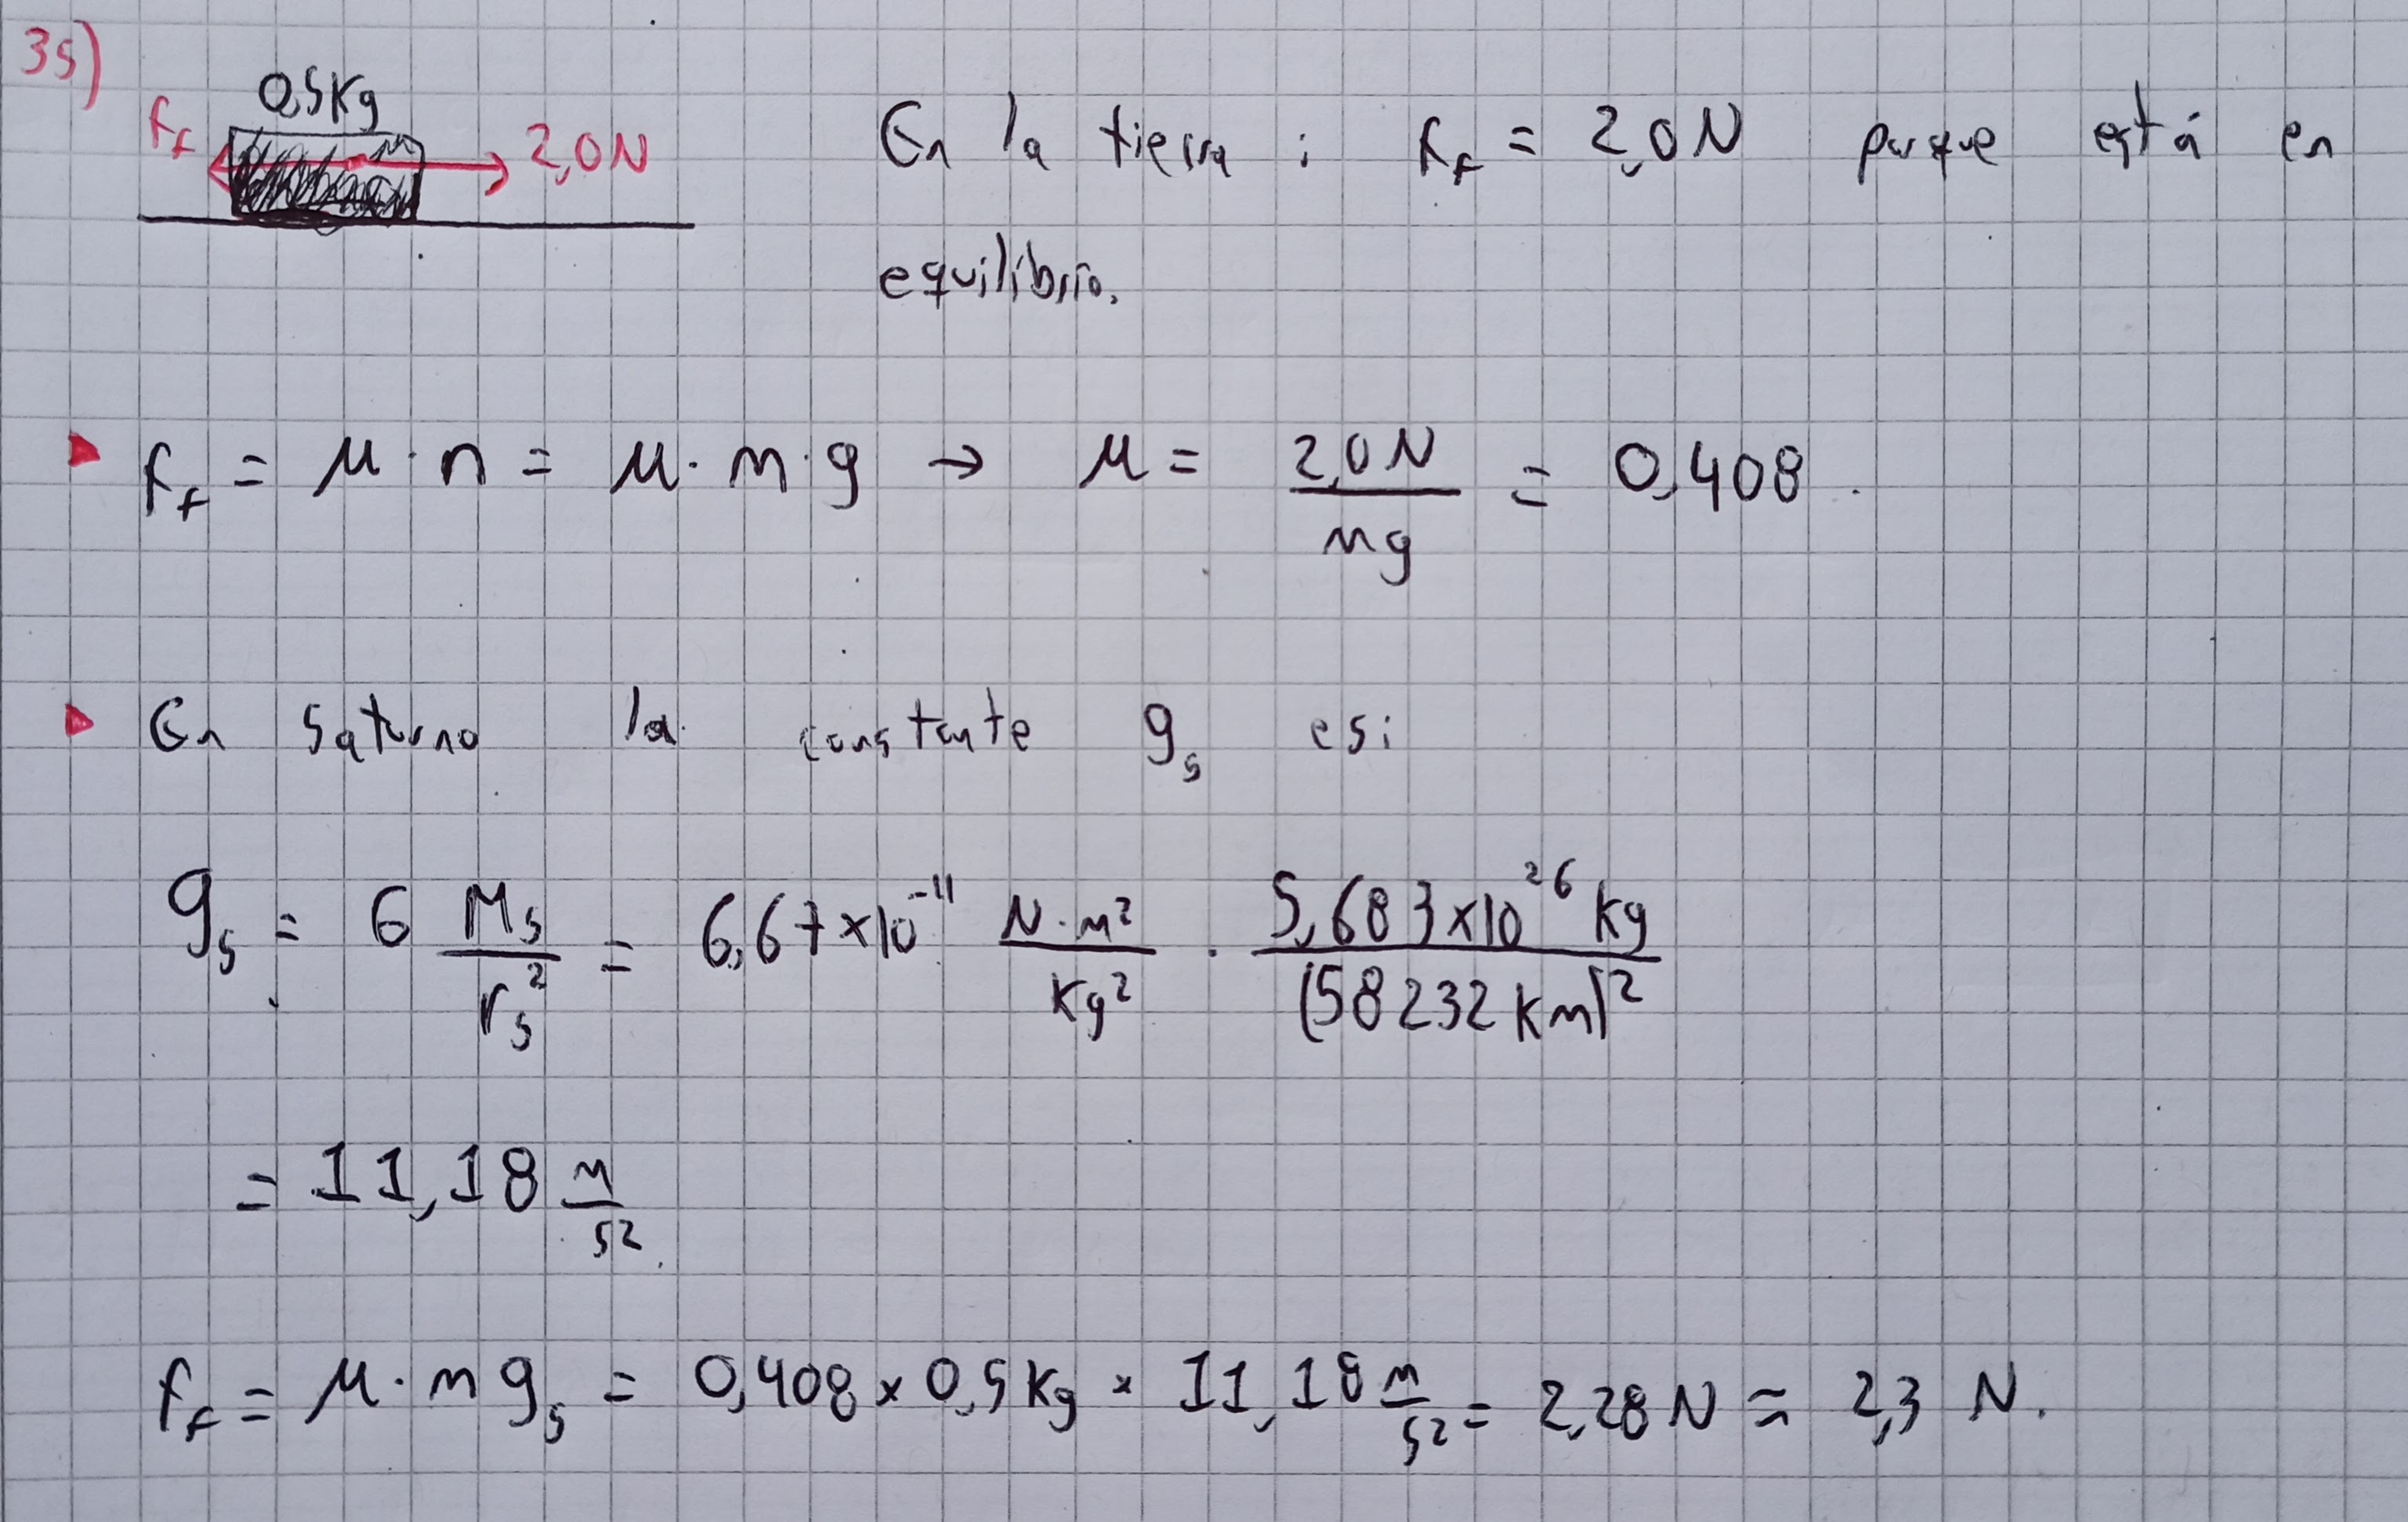 35)
0,5Kg
f_f 2,0N
En la tierra: f_f = 2,0N porque está en
equilibrio.
f_f = μ·n = μ·m·g → μ = 2,0N / mg = 0,408.
En saturno la constante g_s es:
g_s = G M_s / r_s² = 6,67×10⁻¹¹ N·m² / Kg² · 5,683×10²⁶ kg / (58232 km)²
= 11,18 m/s².
f_f = μ·m g_s = 0,408 × 0,5Kg × 11,18 m/s² = 2,28N ≈ 2,3 N.